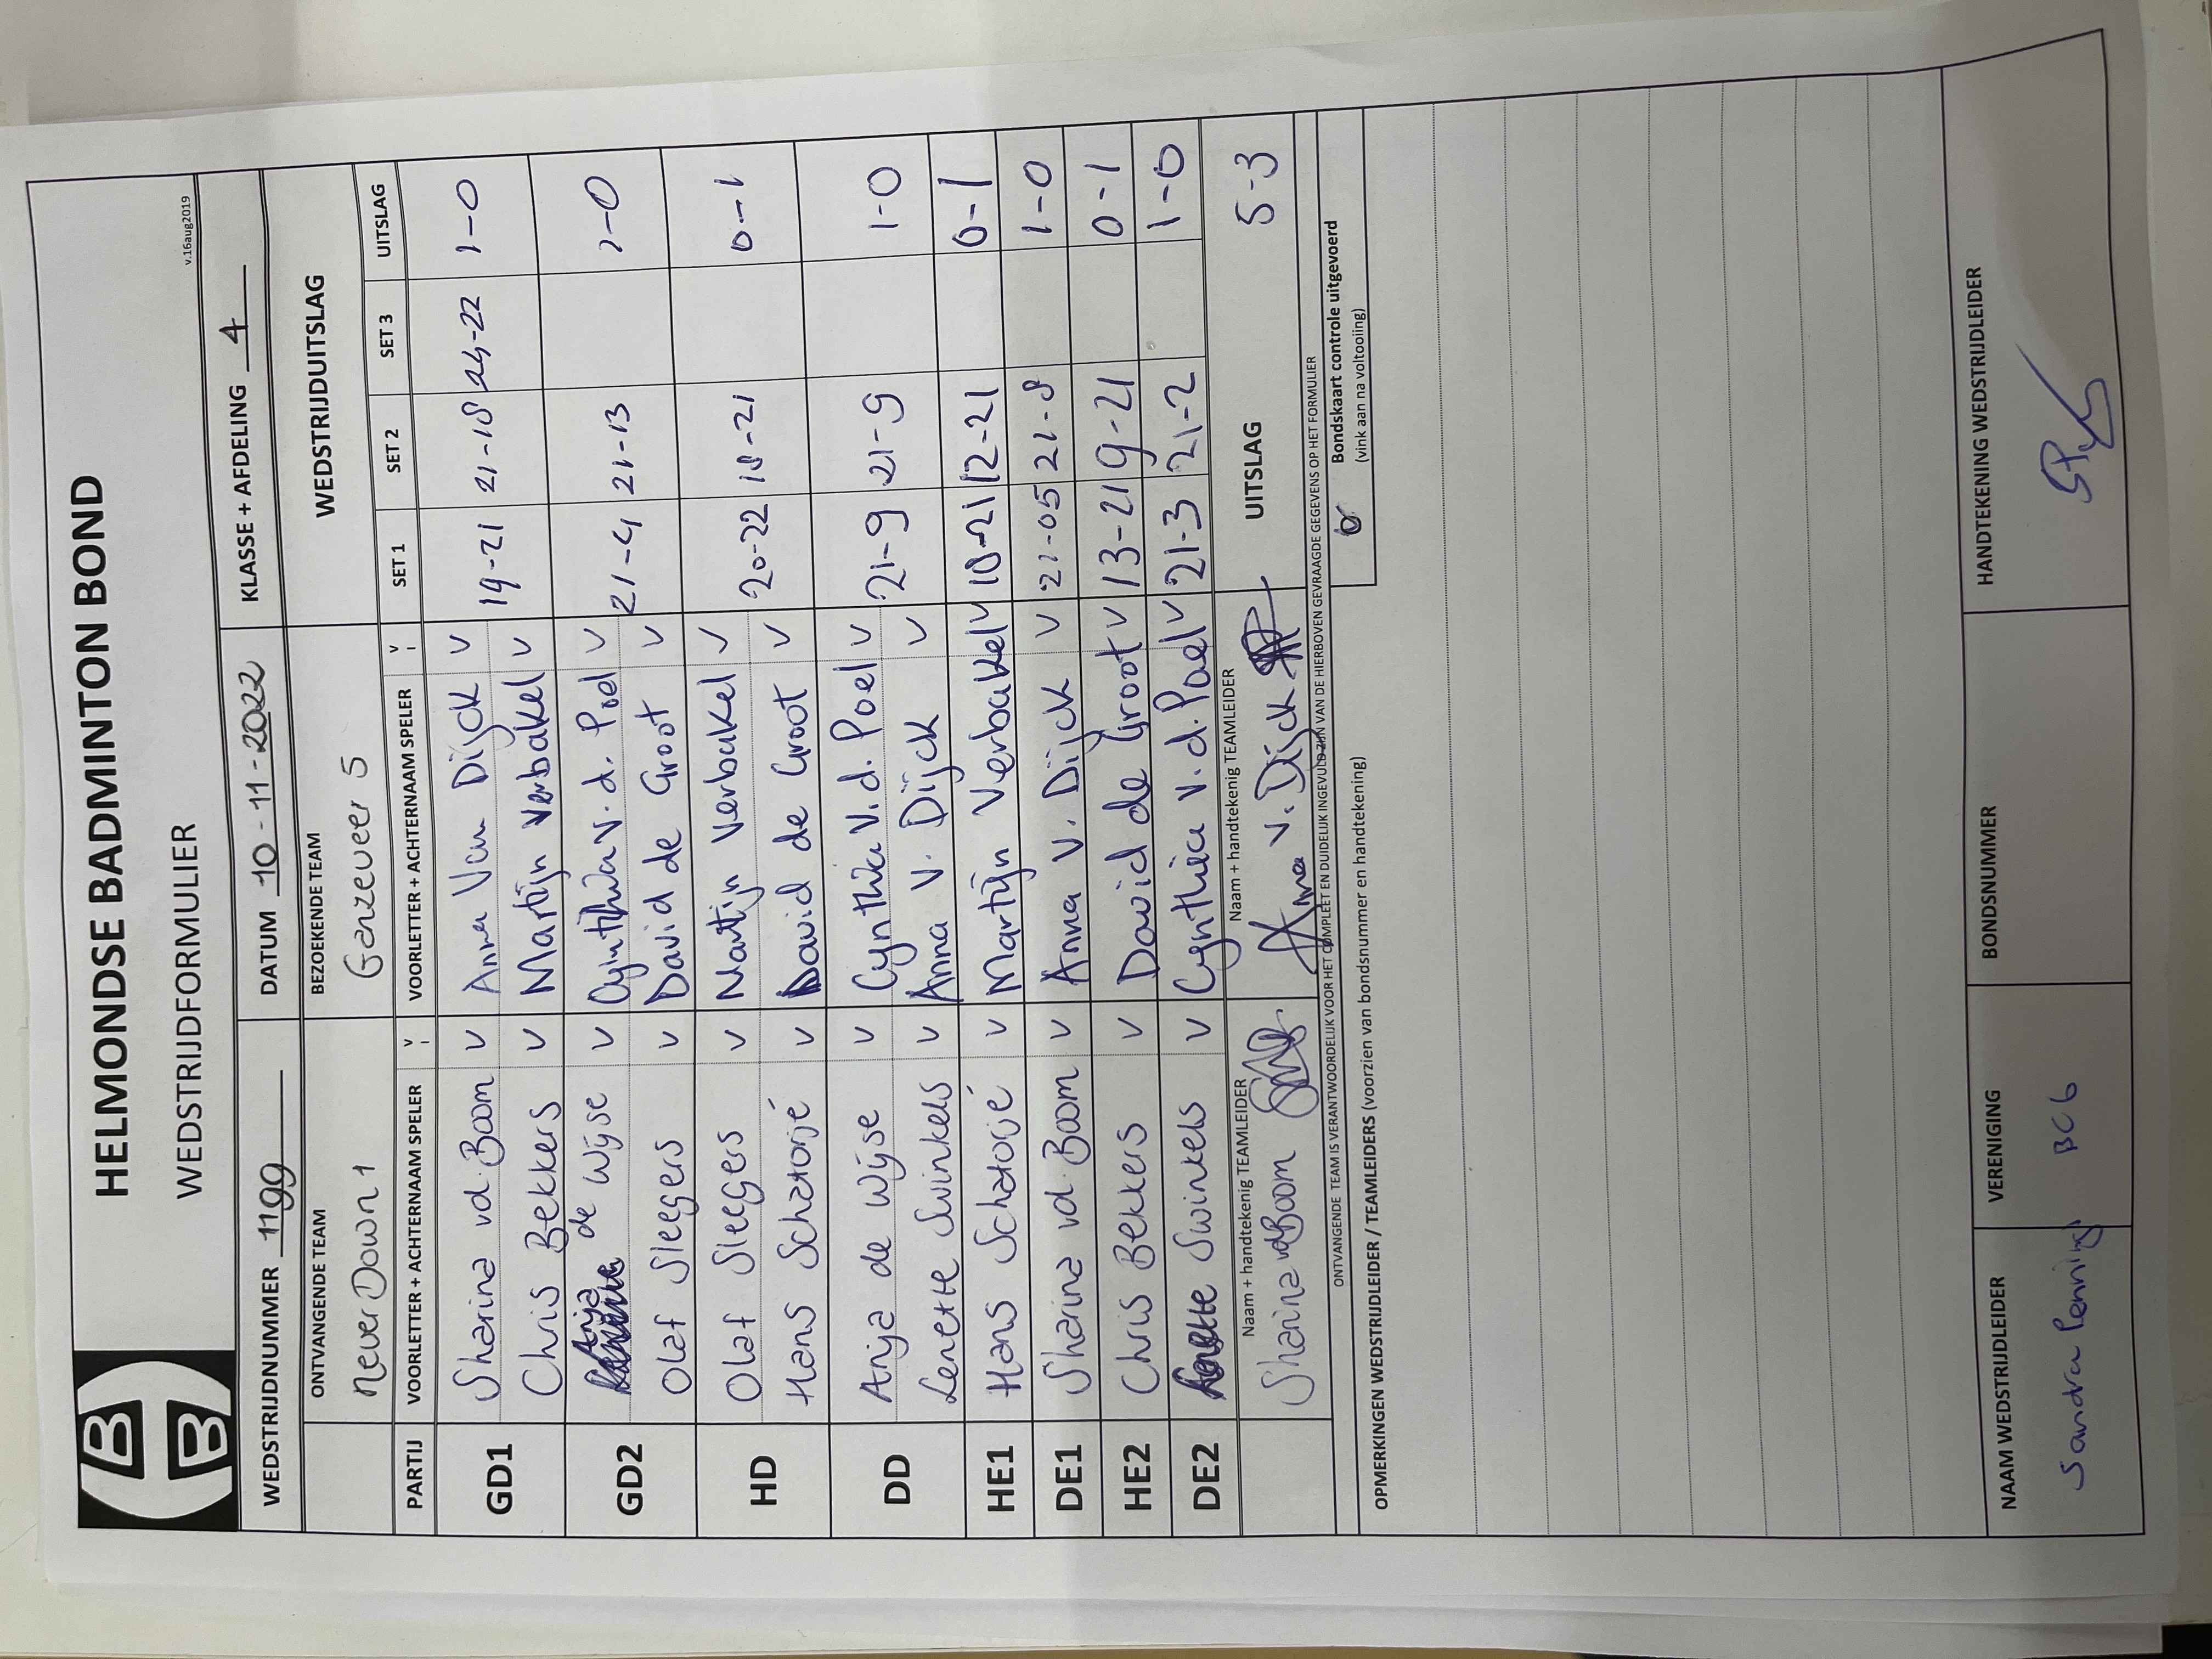 HELMONDSE BADMINTON BOND
WEDSTRIJDFORMULIER
v.16aug2019
WEDSTRIJDNUMMER 1199 DATUM 10-11-2022 KLASSE + AFDELING 4
ONTVANGENDE TEAM BEZOEKENDE TEAM WEDSTRIJDUITSLAG
Never Down 1 Ganzeveer 5
PARTIJ VOORLETTER + ACHTERNAAM SPELER V VOORLETTER + ACHTERNAAM SPELER V SET 1 SET 2 SET 3 UITSLAG
GD1 Sharina vd. Boom V Anna Van Dijck V 19-21 21-18 24-22 1-0
Chris Bekkers V Martijn Verbakel V
GD2 Anja de Wijse V Cynthia v. d. Poel V 21-4 21-13 1-0
Olaf Sleegers V David de Groot V
HD Olaf Sleegers V Martijn Verbakel V 20-22 18-21 0-1
Hans Schatorjé V David de Groot V
DD Anja de Wijse V Cynthia V. d. Poel V 21-9 21-9 1-0
Lenette Swinkels V Anna V. Dijck V
HE1 Hans Schatorjé V Martijn Verbakel V 10-21 12-21 0-1
DE1 Sharina vd. Boom V Anna V. Dijck V 21-05 21-8 1-0
HE2 Chris Bekkers V David de Groot V 13-21 9-21 0-1
DE2 Swinkels V Cynthia v. d. Poel V 21-3 21-2 1-0
Naam + handtekenig TEAMLEIDER Naam + handtekenig TEAMLEIDER UITSLAG 5-3
Sharina vd Boom Anna v. Dijck
ONTVANGENDE TEAM IS VERANTWOORDELIJK VOOR HET COMPLEET EN DUIDELIJK INGEVULD ZIJN VAN DE HIERBOVEN GEVRAAGDE GEGEVENS OP HET FORMULIER
Bondskaart controle uitgevoerd
(vink aan na voltooiing)
OPMERKINGEN WEDSTRIJDLEIDER / TEAMLEIDERS (voorzien van bondsnummer en handtekening)
NAAM WEDSTRIJDLEIDER VERENIGING BONDSNUMMER HANDTEKENING WEDSTRIJDLEIDER
Sandra Pennings BC6